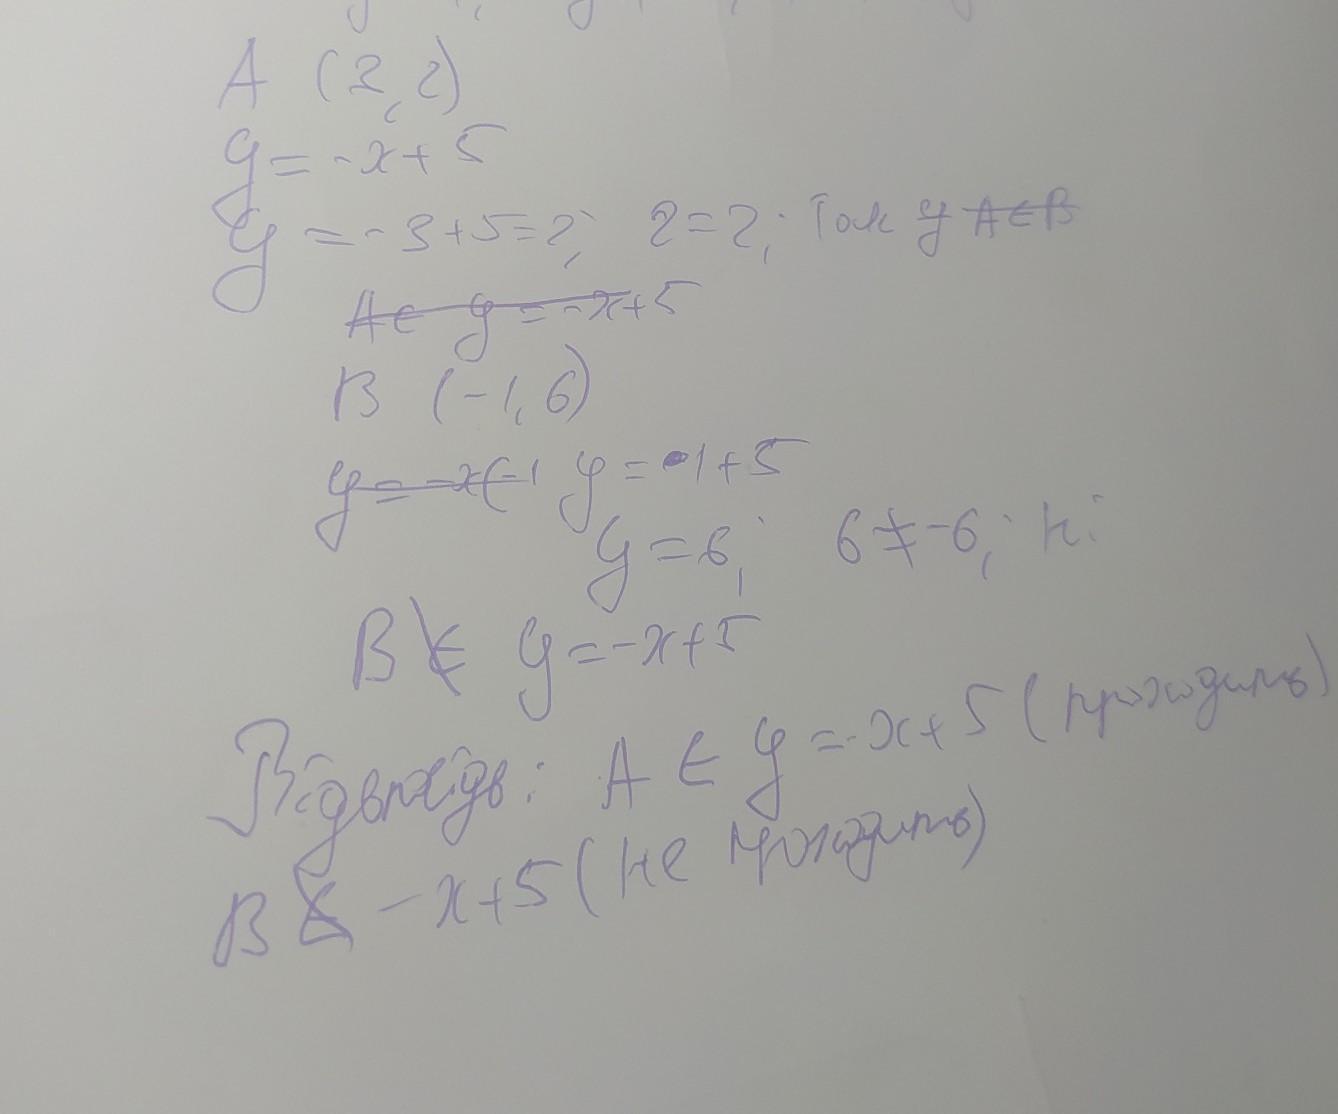 A (3, 2)
y = -x + 5
y = -3 + 5 = 2; 2 = 2; Так y A ∈ B
A ∈ y = -x + 5
B (-1, 6)
y = -x(-1 y = 1 + 5
y = 6; 6 ≠ -6; ні
B ∉ y = -x + 5
Відповідь: A ∈ y = -x + 5 (проходить)
B ∉ -x + 5 (не проходить)